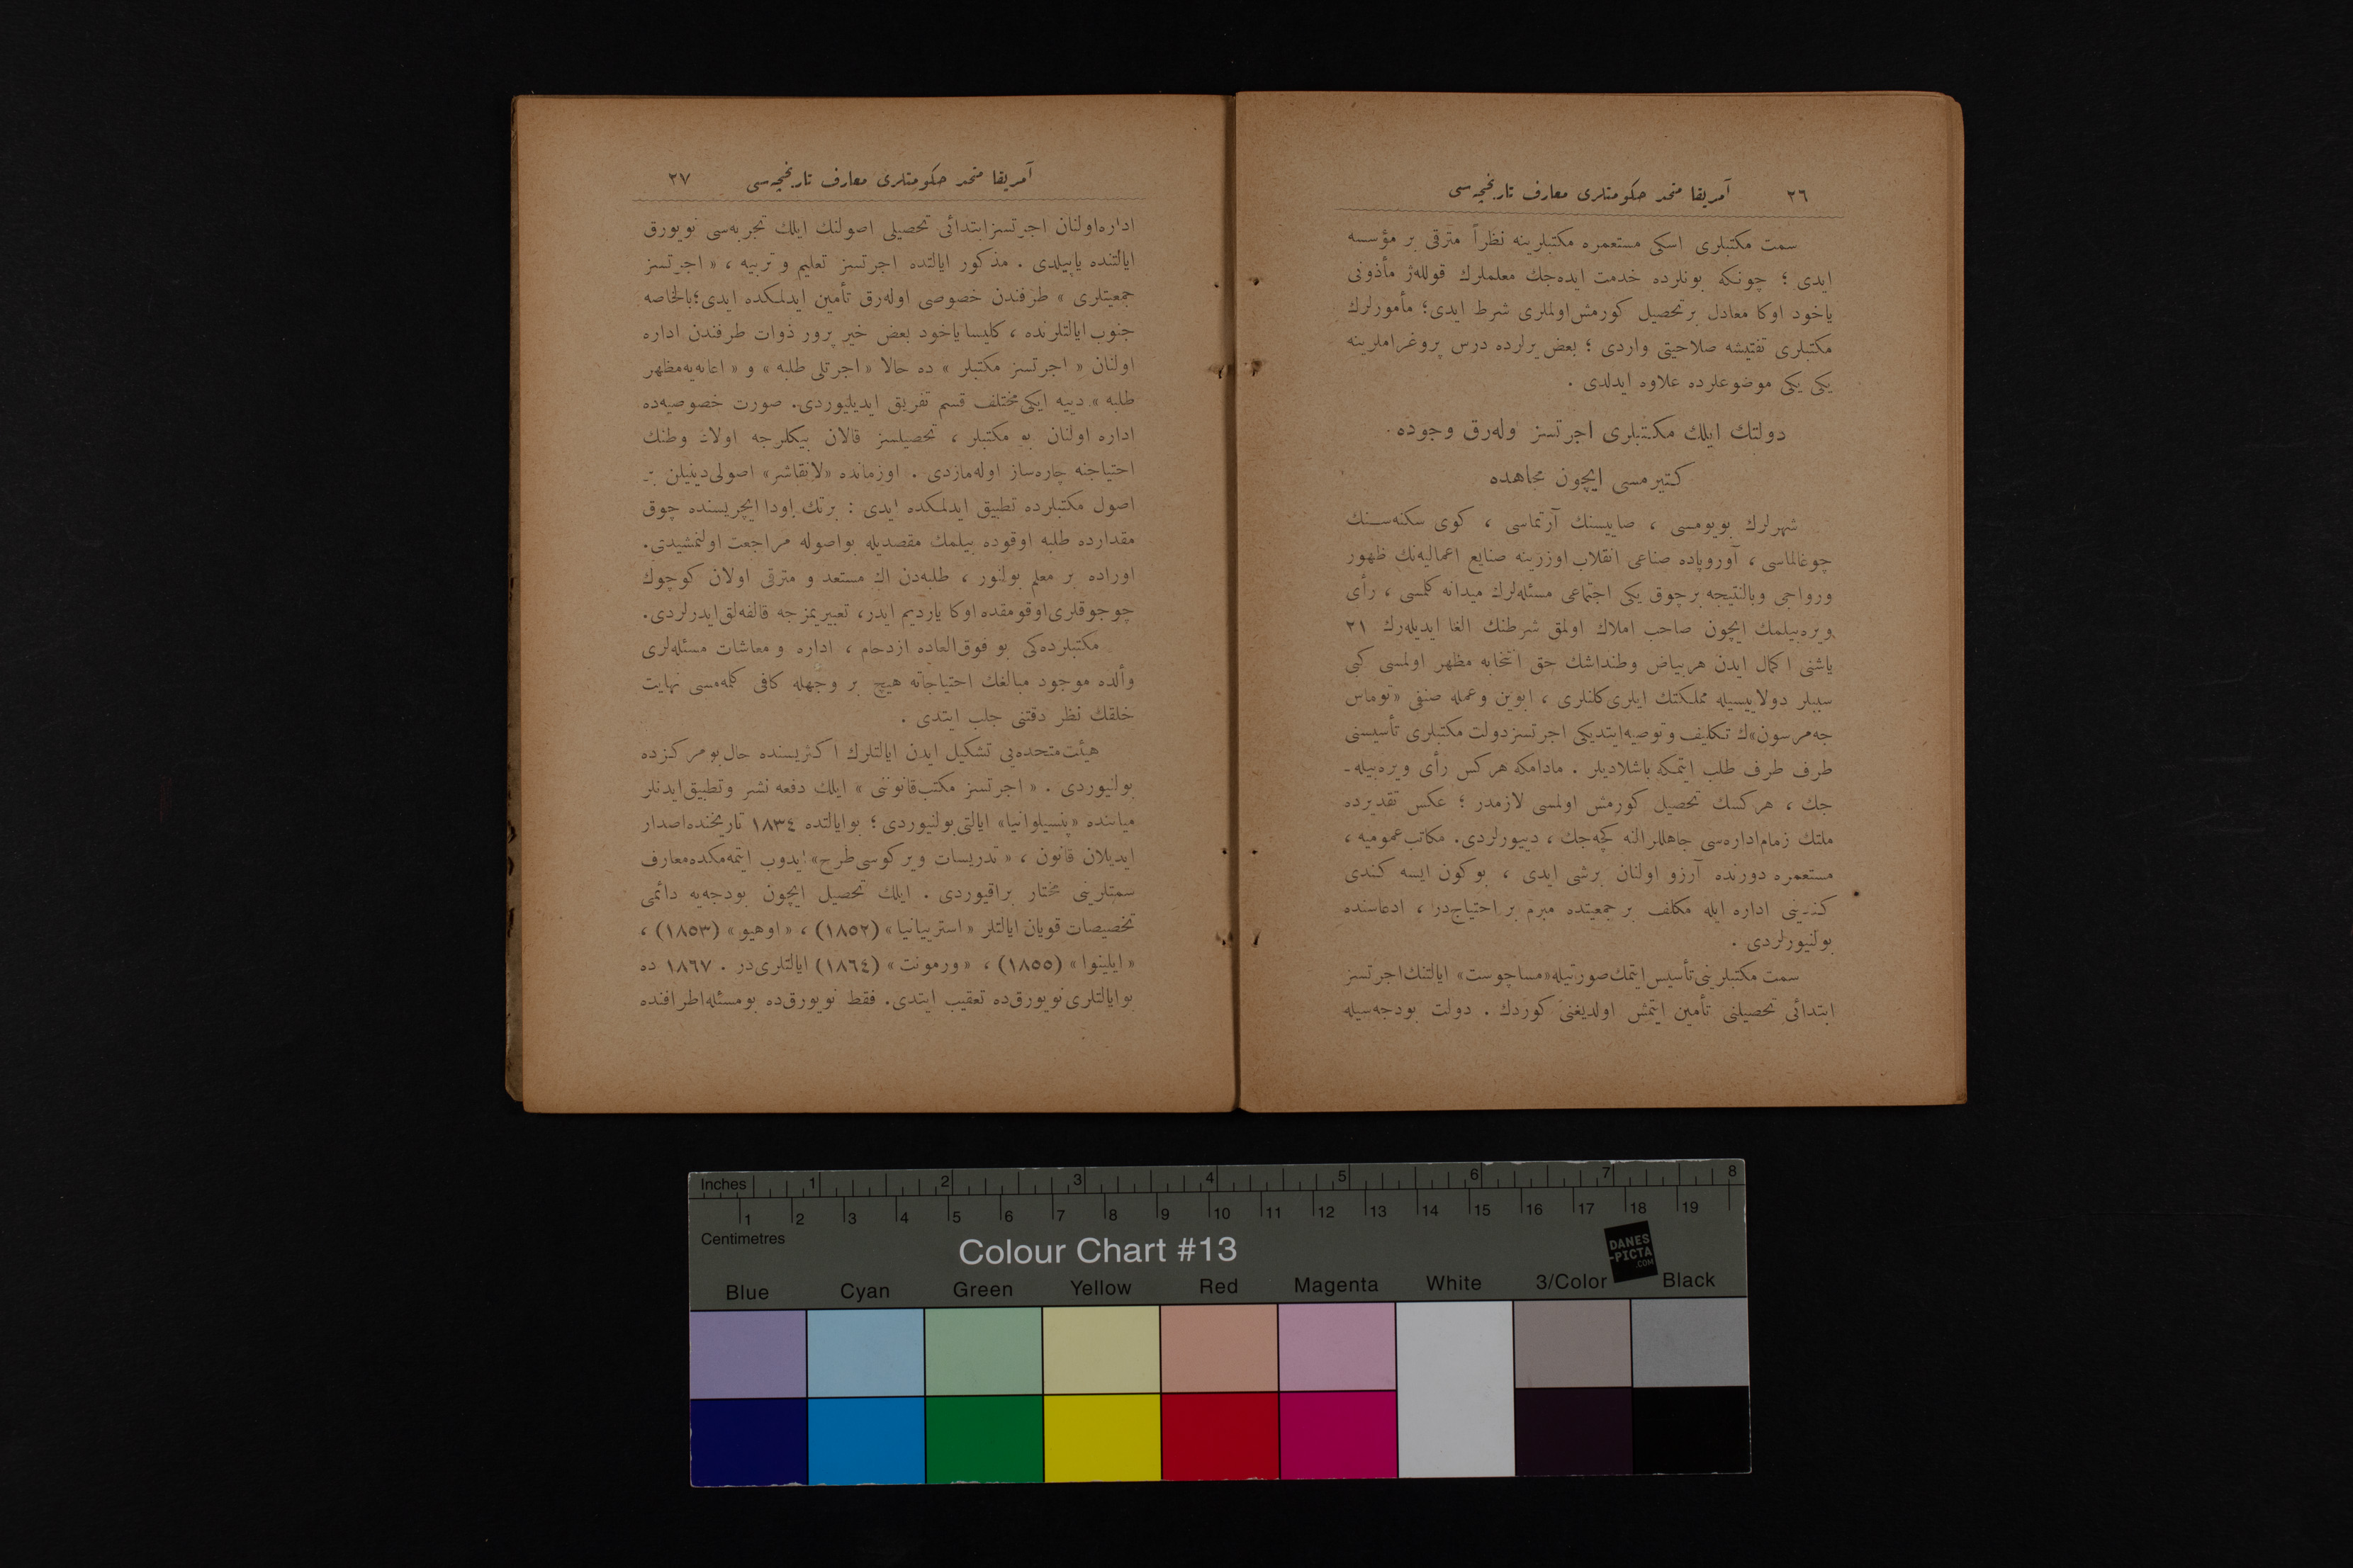 ٢٦
آمریقا متحد حكومتلری معارف تاریخچه‌سی
سمت مكتبلری اسكی مستعمره مكتبلرینه نظراً مترقی بر مؤسسه
ایدی ؛ چونكه بونلرده خدمت ایده‌جك معلملرك قوللەژ مأذونی
یاخود اوكا معادل برتحصیل كورمش اولملری شرط ایدی؛ مأمورلرك
مكتبلری تفتیشه صلاحیتی واردی ؛ بعض یرلرده درس پروغراملرینه
یكی یكی موضوعلرده علاوه ایدلدی .
دولتك ایلك مكتبلری اجرتسز وله‌رق وجوده
كتیرمسی ایچون مجاهده
شهرلرك بویومسی ، صاییسنك آرتماسی ، كوی سكنه‌سنك
چوغالماسی ، آوروپاده صناعی انقلاب اوززینه صنایع اعمالیه‌نك ظهور
ورواجی وبالنتیجه برچوق یكی اجتماعی مسئله‌لرك میدانه كلمسی ، رأی
ویره‌بیلمك ایچون صاحب املاك اولمق شرطنك الغا ایدیله‌رك ٢١
یاشنی اكمال ایدن هربیاض وطنداشك حق انتخابه مظهر اولمسی كبی
سببلر دولاییسیله مملكتك ایلری‌كلنلری ، ابوین وعمله صنفی «توماس
جه‌مرسون»ك تكلیف وتوصیه‌ایتدیكی اجرتسزدولت مكتبلری تأسیسنی
طرف طرف طلب ایتمكه باشلادیلر . مادامكه هركس رأی ویره‌بیله-
جك ، هركسك تحصیل كورمش اولمسی لازمدر ؛ عكس تقدیرده
ملتك زمام‌اداره‌سی جاهللرالنه كچه‌جك ، دییورلردی. مكاتب‌عمومیه ،
مستعمره دورنده آرزو اولنان برشی ایدی ، بوكون ایسه كندی
كندینی اداره ایله مكلف برجمعیتده مبرم بر احتیاج‌در ، ادعاسنده
بولنیورلردی .
سمت مكتبلرینی‌تأسیس‌ایتمك‌صورتیله«مساچوست» ایالتنك‌اجرتسز
ابتدائی تحصیلنی تأمین ایتمش اولدیغنی كوردك . دولت بودجه‌سیله
آمریقا متحد حكومتلری معارف تاریخچه‌سی
٢٧
اداره‌اولنان اجرتسزابتدائی تحصیلی اصولنك ایلك تجربه‌سی نویورق
ایالتنده یاپیلدی . مذكور ایالتده اجرتسز تعلیم و تربیه ، « اجرتسز
جمعیتلری » طرفندن خصوصی اوله‌رق تأمین ایدلمكده ایدی؛بالخاصه
جنوب‌ایالتلرنده ، كلیسا یاخود بعض خیر پرور ذوات طرفندن اداره
اولنان « اجرتسز مكتبلر » ده حالا « اجرتلی طلبه » و « اعانه‌یه‌مظهر
طلبه » دییه ایكی‌مختلف قسم تفریق ایدیلیوردی. صورت خصوصیه‌ده
اداره اولنان بو مكتبلر ، تحصیلسز قالان بیكلرجه اولاد وطنك
احتیاجنه چاره‌ساز اوله‌مازدی . اوزمانده «لانقاشر» اصولی‌دینیلن بر
اصول مكتبلرده تطبیق ایدلمكده ایدی : برتك اودا ایچریسنده چوق
مقدارده طلبه اوقوده بیلمك مقصدیله بواصوله مراجعت اولنمشیدی.
اوراده بر معلم بولنور ، طلبه‌دن اك مستعد و مترقی اولان كوچوك
چوجوقلری‌اوقومقده‌اوكا یاردیم ایدر، تعبیریمزجه قالفه‌لق‌ایدرلردی.
مكتبلرده‌كی بو فوق‌العاده ازدحام ، اداره و معاشات مسئله‌لری
وألده موجود مبالغك احتیاجاته هیچ بر وجهله كافی كلمه‌مسی نهایت
خلقك نظر دقتنی جلب ایتدی .
هیئت‌متحده‌یی تشكیل ایدن ایالتلرك اكثریسنده حال‌بومركزده
بولنیوردی . « اجرتسز مكتب‌قانوننی » ایلك دفعه نشر وتطبیق‌ایدنلر
میاننده «پنسیلوانیا» ایالتی‌بولنیوردی ؛ بوایالتده ١٨٣٤ تاریخنده‌اصدار
ایدیلان قانون ، « تدریسات ویركوسی‌طرح» ایدوب ایتمه‌مكده‌معارف
سمتلرینی مختار براقیوردی . ایلك تحصیل ایچون بودجه‌یه دائمی
تخصیصات قویان ایالتلر « استریبانیا » (١٨٥٢) ، « اوهیو » (١٨٥٣) ،
« ایلینوا » (١٨٥٥) ، « ورمونت » (١٨٦٤) ایالتلری‌در . ١٨٦٧ ده
بوایالتلری‌نویورق‌ده تعقیب ایتدی. فقط نویورق‌ده بومسئله‌اطرافنده
Inches 1 2 3 4 5 6 7 8
1 2 3 4 5 6 7 8 9 10 11 12 13 14 15 16 17 18 19
Centimetres
Colour Chart #13
DANES
-PICTA
.COM
Blue Cyan Green Yellow Red Magenta White 3/Color Black